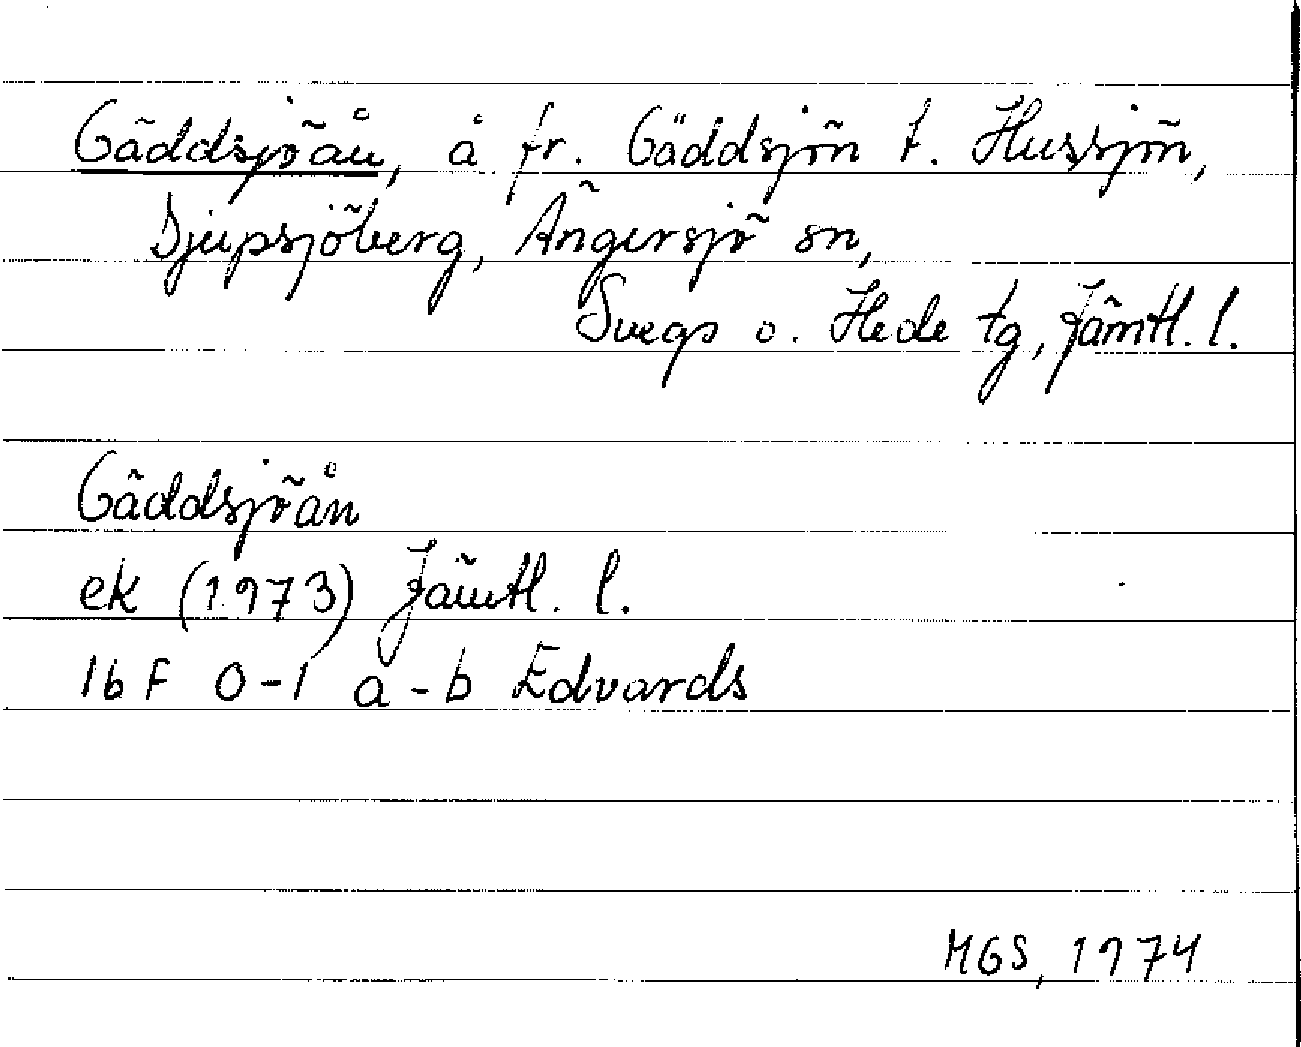 Gäddsjöån, å fr. Gäddsjön t. Hussjön,
Djupsjöberg, Ängersjö sn,
Svegs o. Hede tg, Jämtl. l.
Gäddsjöån
ek (1973) Jämtl. l.
16 F 0-1 a-b Edvards
MGS, 1974